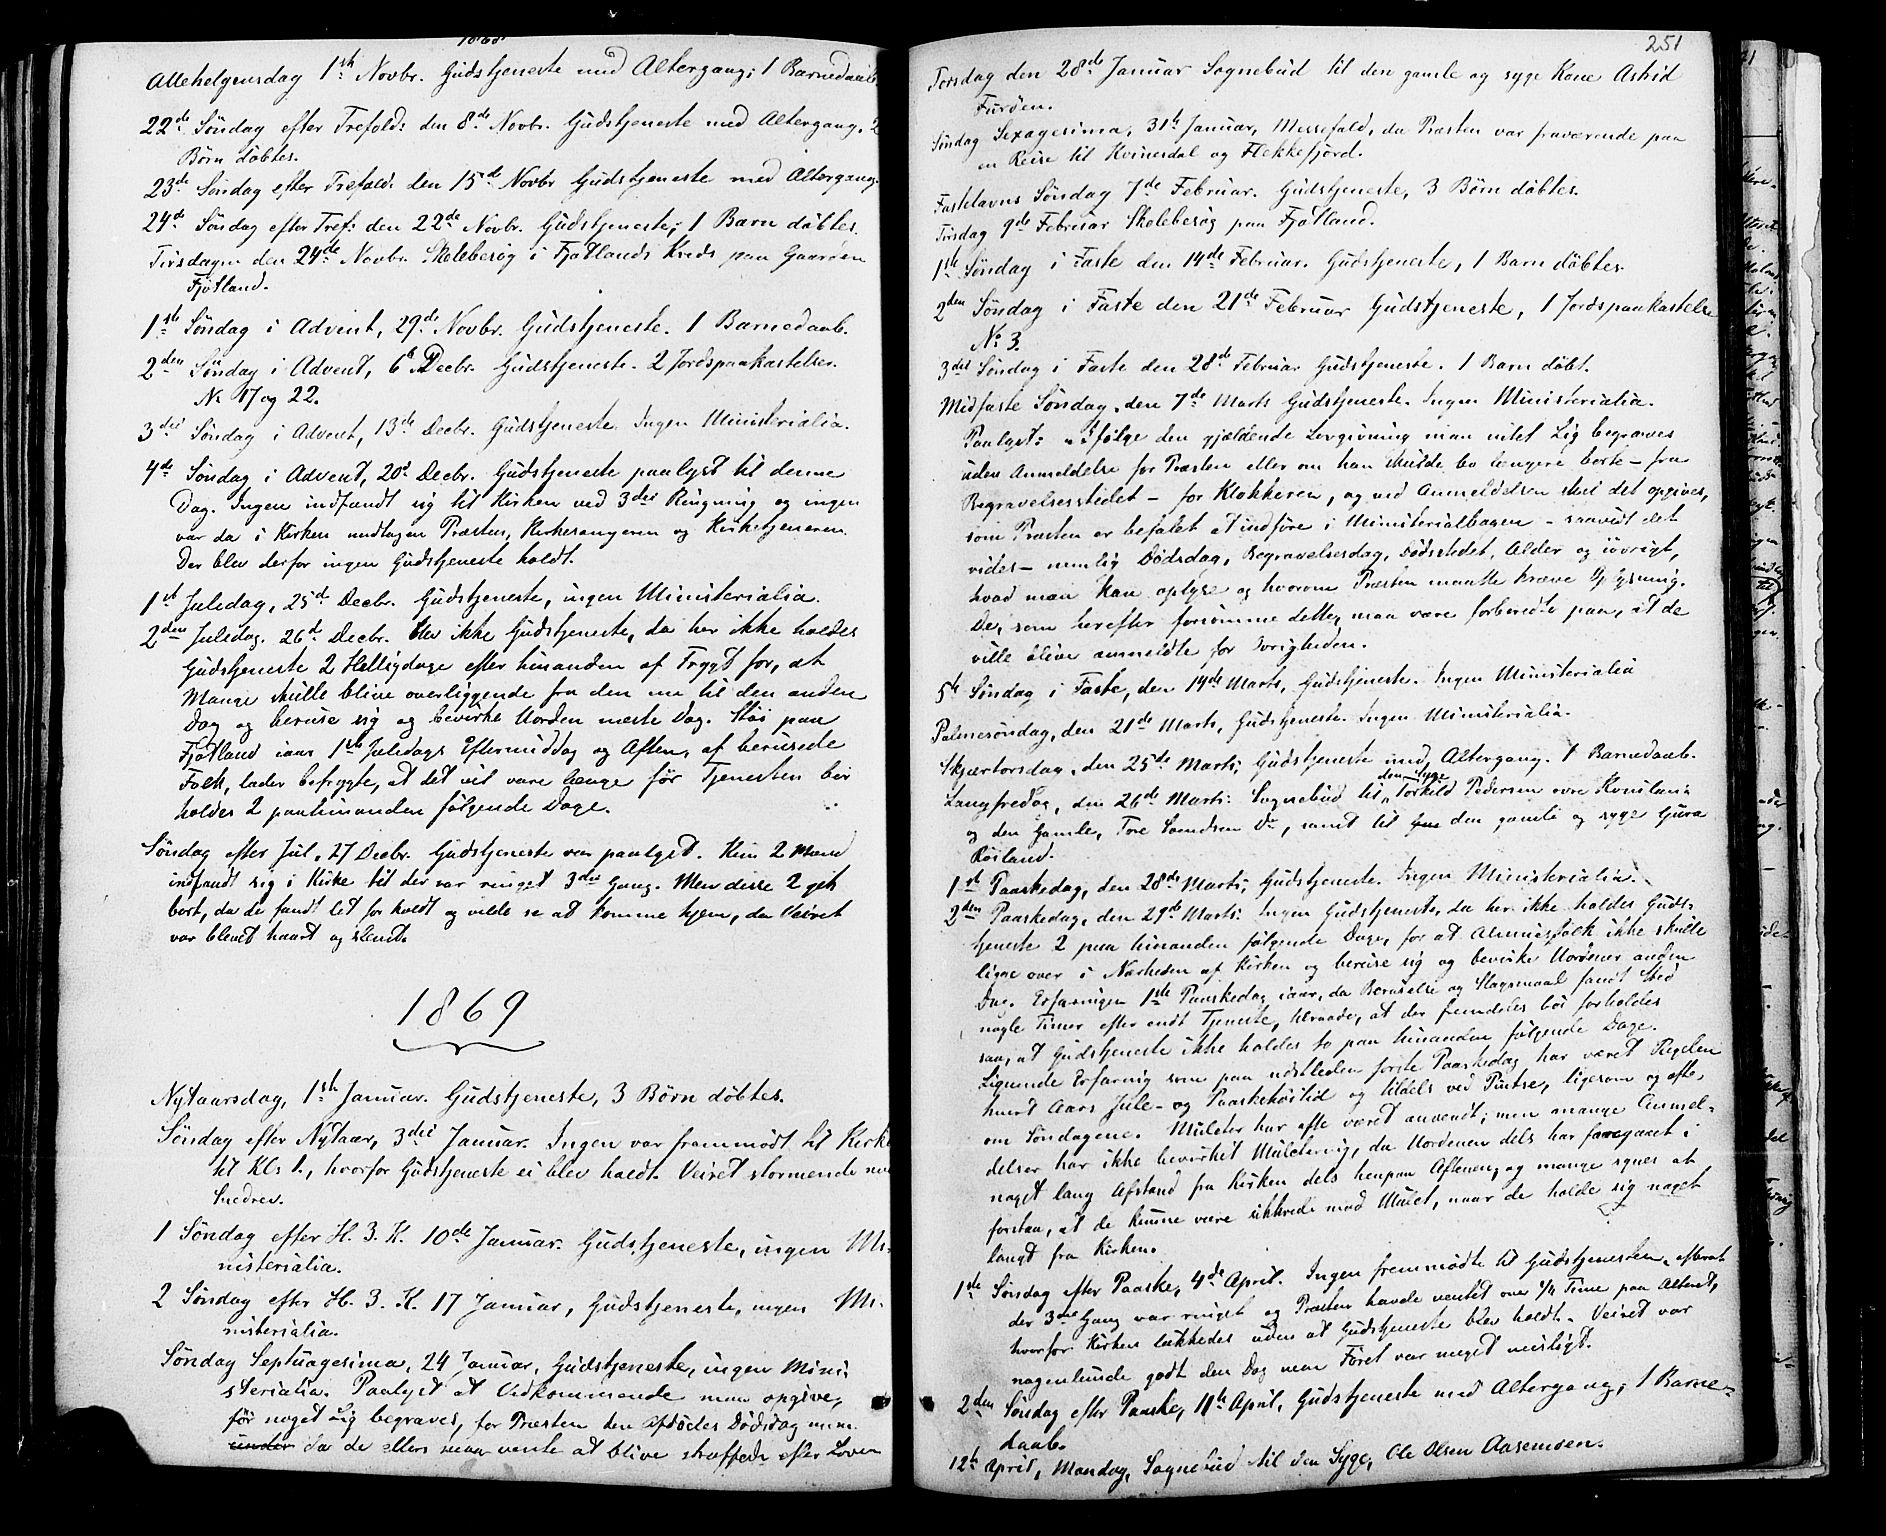 1868
Allehelgensdag 1ste Novbr. Gudstjeneste med Altergang; 1 Barnedaab
22de Søndag efter Trefold: den 8de Novbr. Gudstjeneste med Altergang. 2
Børn døbtes.
23de Søndag efter Trefold: den 15de Novbr Gudstjeneste med Altergang.
24de Søndag efter Tref: den 22de Novbr. Gudstjeneste; 1 Barn døbtes.
Tirsdagen den 24de Novbr. Skolebesøg i Fjotlands Kreds paa Gaarden
Fjotland.
1ste Søndag i Advent, 29de Novbr. Gudstjeneste. 1 Barnedaab.
2den Søndag i Advent, 6te Decbr. Gudstjeneste. 2 Jordspaakastelser.
No 17 og 22.
3die Søndag i Advent, 13de Decbr. Gudstjeneste. Ingen Ministerialia.
4de Søndag i Advent, 20d Decbr. Gudstjeneste paalyst til denne
Dag. Ingen indfandt sig til Kirken ved 3die Ringning og ingen
var da i Kirken undtagen Præsten, Kirkesangeren og Kirketjeneren.
Der blev derfor ingen Gudstjeneste holdt.
1st Juledag, 25d Decbr. Gudstjeneste, ingen Ministerialia.
2den Juledag. 26d Decbr. blev ikke Gudstjeneste, da her ikke holdes
Gudstjeneste 2 Helligdage efter hinanden af Frygt for, at
Mange skulle blive overliggende fra den ene til den anden
Dag og beruse sig og bevirke Uorden næste Dag. Støi paa
Fjotland iaar 1ste Juledags Eftermiddag og Aften, af berusede
Folk, lader befrygte, at det vil vare længe før Tjenesten bør
holdes 2 paahinanden følgende Dage.
Søndag efter Jul, 27 Decbr. Gudstjeneste var paalyst. Kun 2 Mænd
indfandt sig i Kirke til der var ringet 3die Gang. Men disse 2 gik
bort, da de fandt det for koldt og vilde se at komme hjem, da Veiret
var blevet haardt og slemt.
1869
Nytaarsdag, 1ste Januar. Gudstjeneste, 3 Børn døbtes.
Søndag efter Nytaar, 3die Januar. Ingen var frammødt til Kirke
til Kl: 1., hvorfor Gudstjeneste ei blev holdt. Veiret stormende med
Snedrev.
1 Søndag efter H. 3. K. 10de Januar. Gudstjeneste, ingen Mi-
nisterialia.
2 Søndag efter H. 3. K. 17 Januar, Gudstjeneste, ingen Mi-
nisterialia.
Søndag Septuagesima, 24 Januar, Gudstjeneste, ingen Mini
sterialia. Paalyst at Vedkommende maa opgive,
før noget Lig begraves, for Præsten den Afdødes Dødsdag m.m.
under da de ellers maa vente at blive straffede efter Loven
251
Torsdag den 28de Januar Sognebud til den gamle og syge Kone Astrid
Furøen.
Søndag Sexagesima, 31te Januar, Messefald, da Præsten var fraværende paa
en Reise til Kvinesdal og Flekkefjord.
Fastelavns Søndag 7de Februar. Gudstjeneste, 3 Børn døbtes.
Tirsdag 9de Februar Skolebesøg paa Fjotland.
1ste Søndag i Faste den 14de Februar. Gudstjeneste, 1 Barn døbtes.
2den Søndag i Faste den 21de Februar Gudstjeneste, 1 Jordspaakastelse
No 3.
3die Søndag i Faste den 28de Februar Gudstjeneste. 1 Barn døbt.
Midfaste Søndag, den 7de Marts Gudstjeneste. Ingen Ministerialia.
Paalyst: "Ifølge den gjældende Lovgivning maa intet Lig begraves
uden Anmeldelse for Præsten eller om han skulde bo længere borte – fra
Begravelsesstedet – for Klokkeren, og ved Anmeldelsen skal det opgives,
som Præsten er befalet at indføre i Ministerialbogen – saavidt det
vides – nemlig Dødsdag, Begravelsesdag, Dødsstedet, Alder og iøvrigt,
hvad man kan oplyse og hvorom Præsten maatte kræve Oplysning.
De, som herefter forsømme dette, maa være forberedte paa, at de
ville blive anmeldte for Øvrigheden.
5te Søndag i Faste, den 14de Marts, Gudstjeneste. Ingen Ministerialia
Palmesøndag, den 21de Marts, Gudstjeneste. Ingen Ministerialia.
Skjærtorsdag, den 25de Marts, Gudstjeneste med Altergang. 1 Barnedaab.
Langfredag, den 26de Marts: Sognebud til den syge Torkild Pedersen øvre Kvinlaug
og den Gamle, Tore Svendsen Do, samt til den gamle og syge Gura
Røiland.
1st Paaskedag, den 28de Marts; Gudstjeneste. Ingen Ministerialia.
2den Paaskedag, den 29de Marts: Ingen Gudstjeneste, da her ikke holdes Guds-
tjeneste 2 paa hinanden følgende Dage, for at Almuesfolk ikke skulle
ligge over i Nærheden af Kirken og beruse sig og bevirke Uordener anden
Dag. Erfaringen 1ste Paaskedag iaar, da Beruselse og Slagsmaal fandt Sted
nogle Timer efter endt Tjeneste, tilraade, at der fremdeles bør forholdes
saa, at Gudstjeneste ikke holdes to paa hinanden følgende Dage.
Lignende Erfaring som paa sidstleden første Paaskedag har været Regelen
hvert Aars Jule- og Paaskehøitid og tildels ved Pintse, ligesom og ofte,
om Søndagene. Mulcter har ofte været anvendt; men mange Anmel-
delser har ikke bevirket Mulctering, da Uordenen dels har foregaaet i
noget lang Afstand fra Kirken dels henpaa Aftenen, og mange synes at
forstaa, at de kunne være sikkrede mod Mulct, naar de holde sig noget
langt fra Kirken.
1ste Søndag efter Paaske, 4de April. Ingen fremmødte til Gudstjenesten, efterat
der 3die Gang var ringet og Præsten havde ventet over 1/4 Time paa Alteret,
hvorfor Kirken lukkedes uden at Gudstjeneste blev holdt. Veiret var
nogenlunde godt den Dag men Føret var meget usligt.
2den Søndag efter Paaske, 11te April, Gudstjeneste med Altergang, 1 Barne-
daab.
12te April, Mandag, Sognebud til den Syge, Ole Olsen Aasemoen.